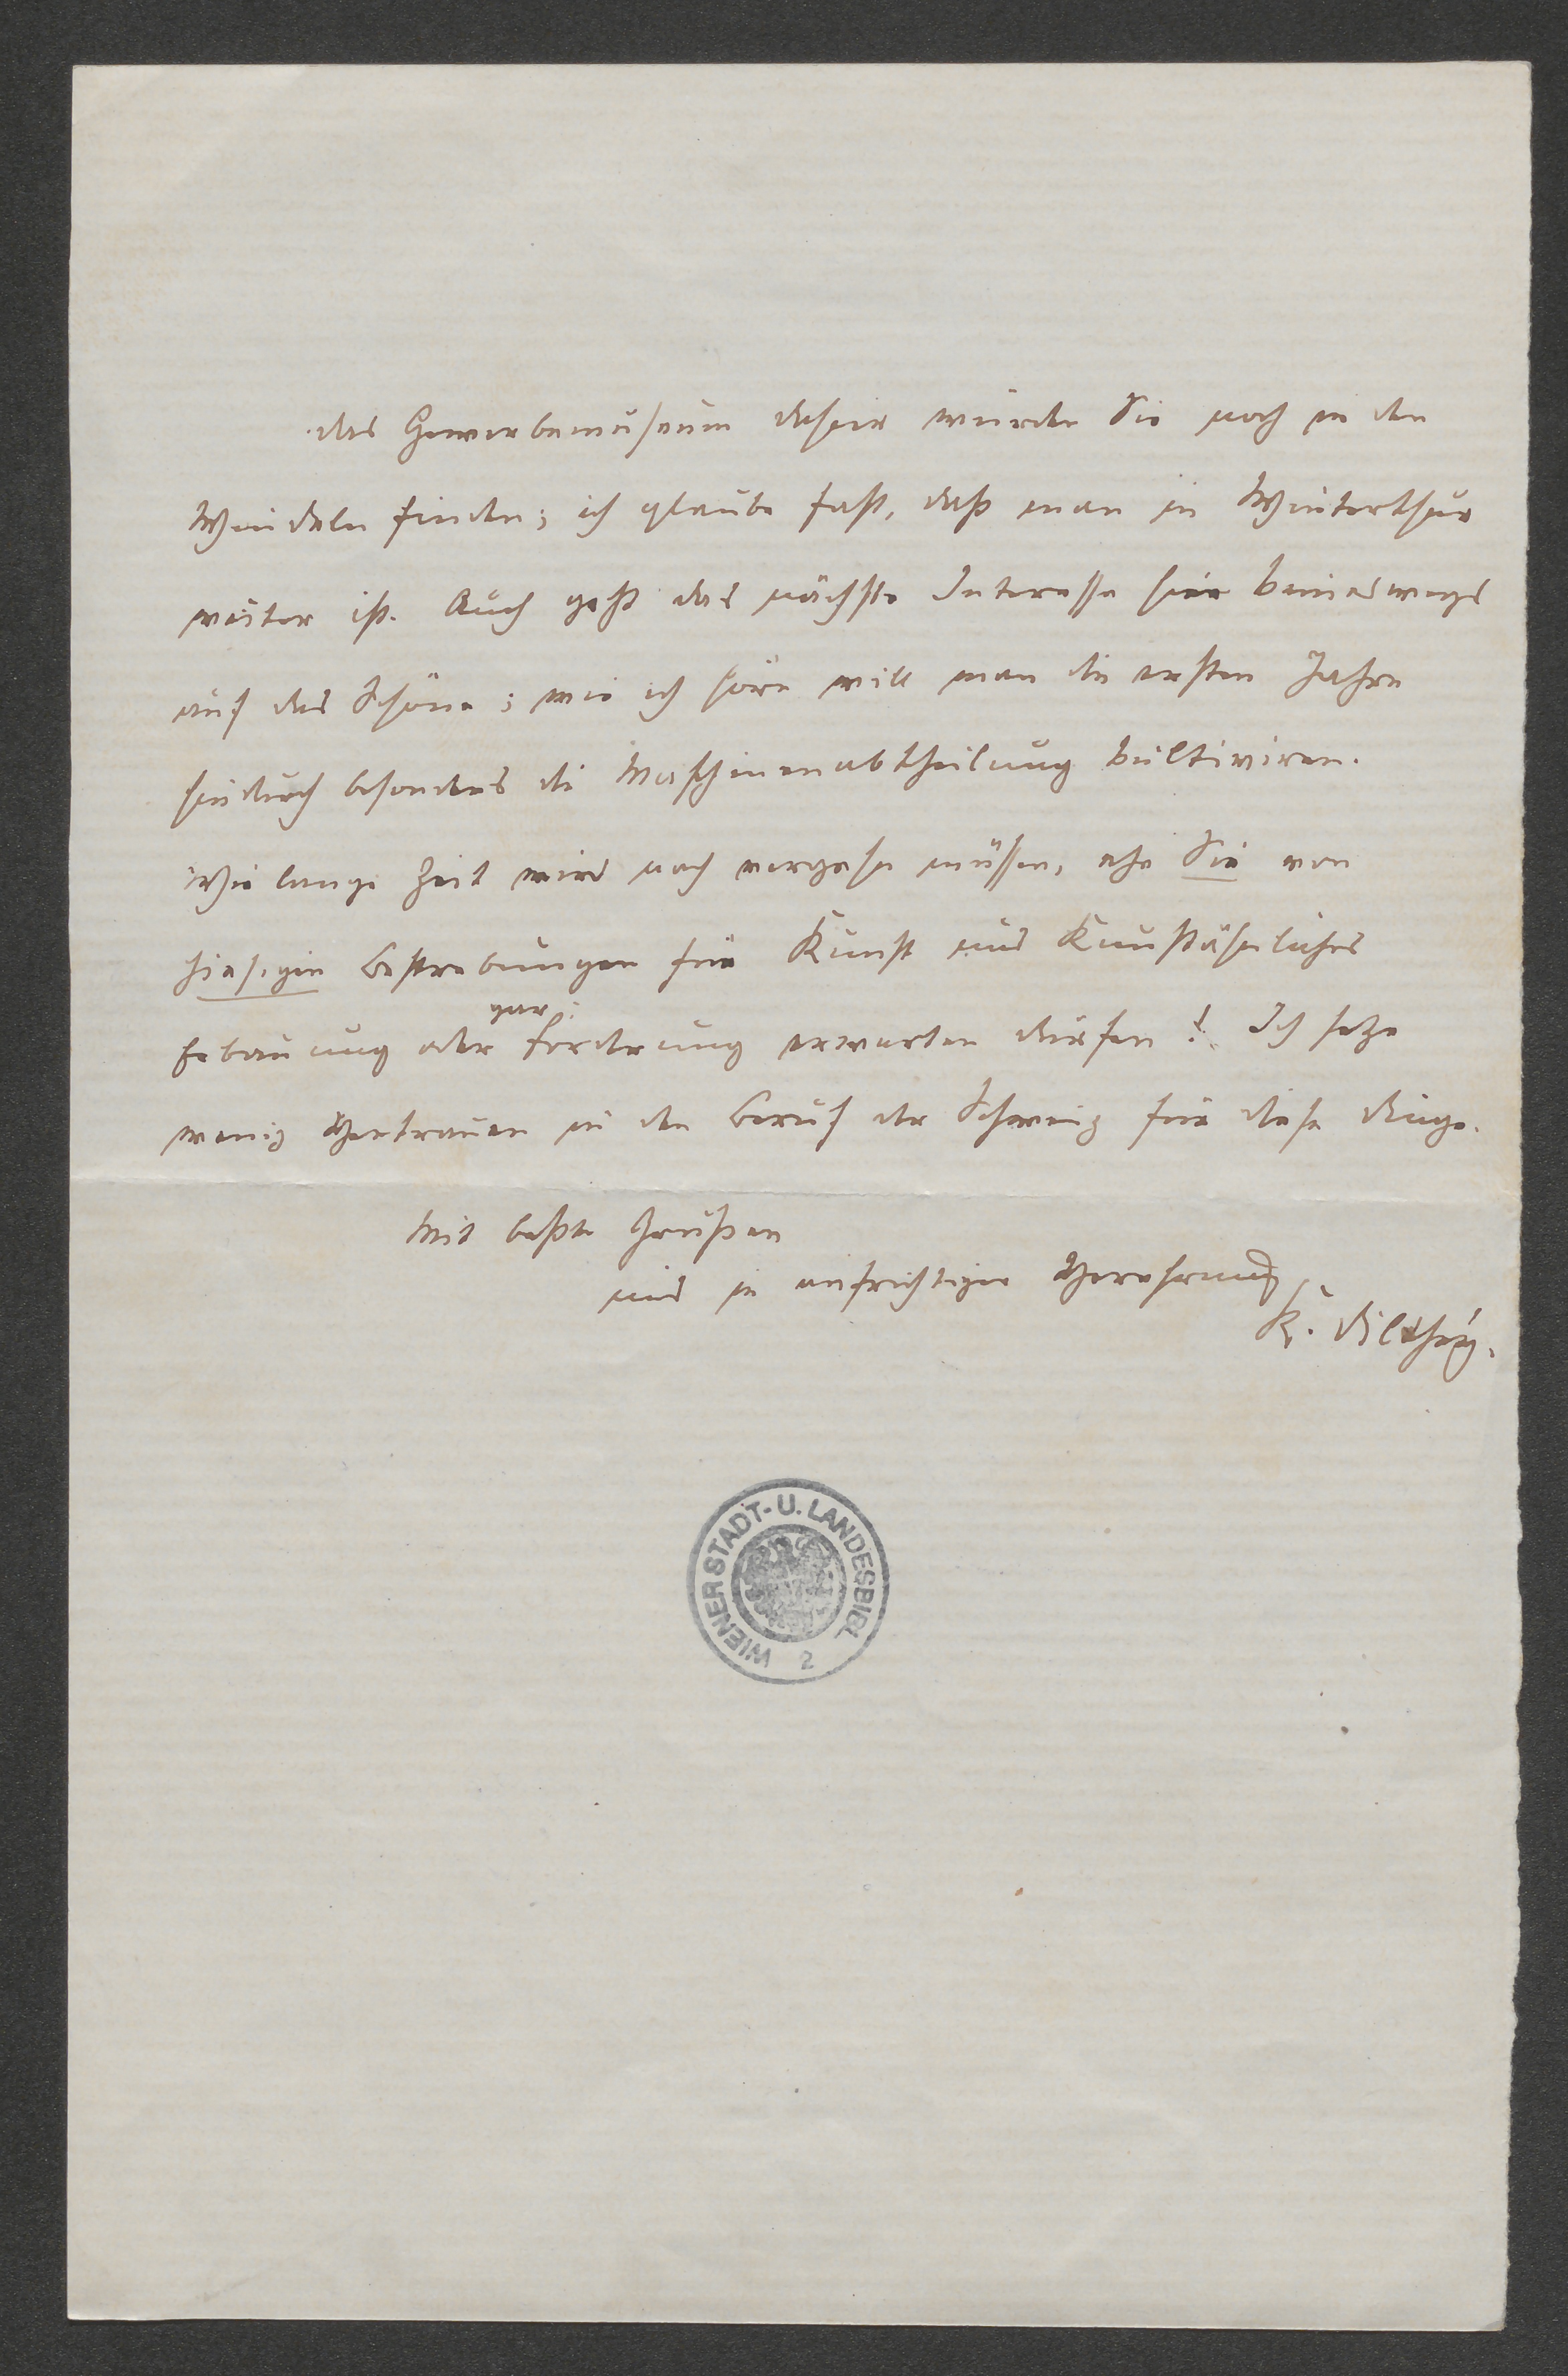 das Gewerbemuseum dahier würden Sie noch in den
Windeln finden; ich glaube fast, daß man in Winterthur
weiter ist. Auch geht das nächste Interesse hier keineswegs
auf das Schöne; wie ich höre will man die ersten Jahre
hindurch besonders die Maschinenabtheilung kultiviren.
Wie lange Zeit wird noch vergehn müssen, ehe Sie von
hiesigen Bestrebungen für Kunst und Kunstähnliches
gar
Erbauung oder Förderung erwarten dürfen! Ich setze
wenig Vertrauen in den Beruf der Schweiz für diese Dinge.
Mit besten Grüßen
und in aufrichtiger Verehrung
K. Dilthey.
WIENER STADT- U. LANDESBIBL.
2